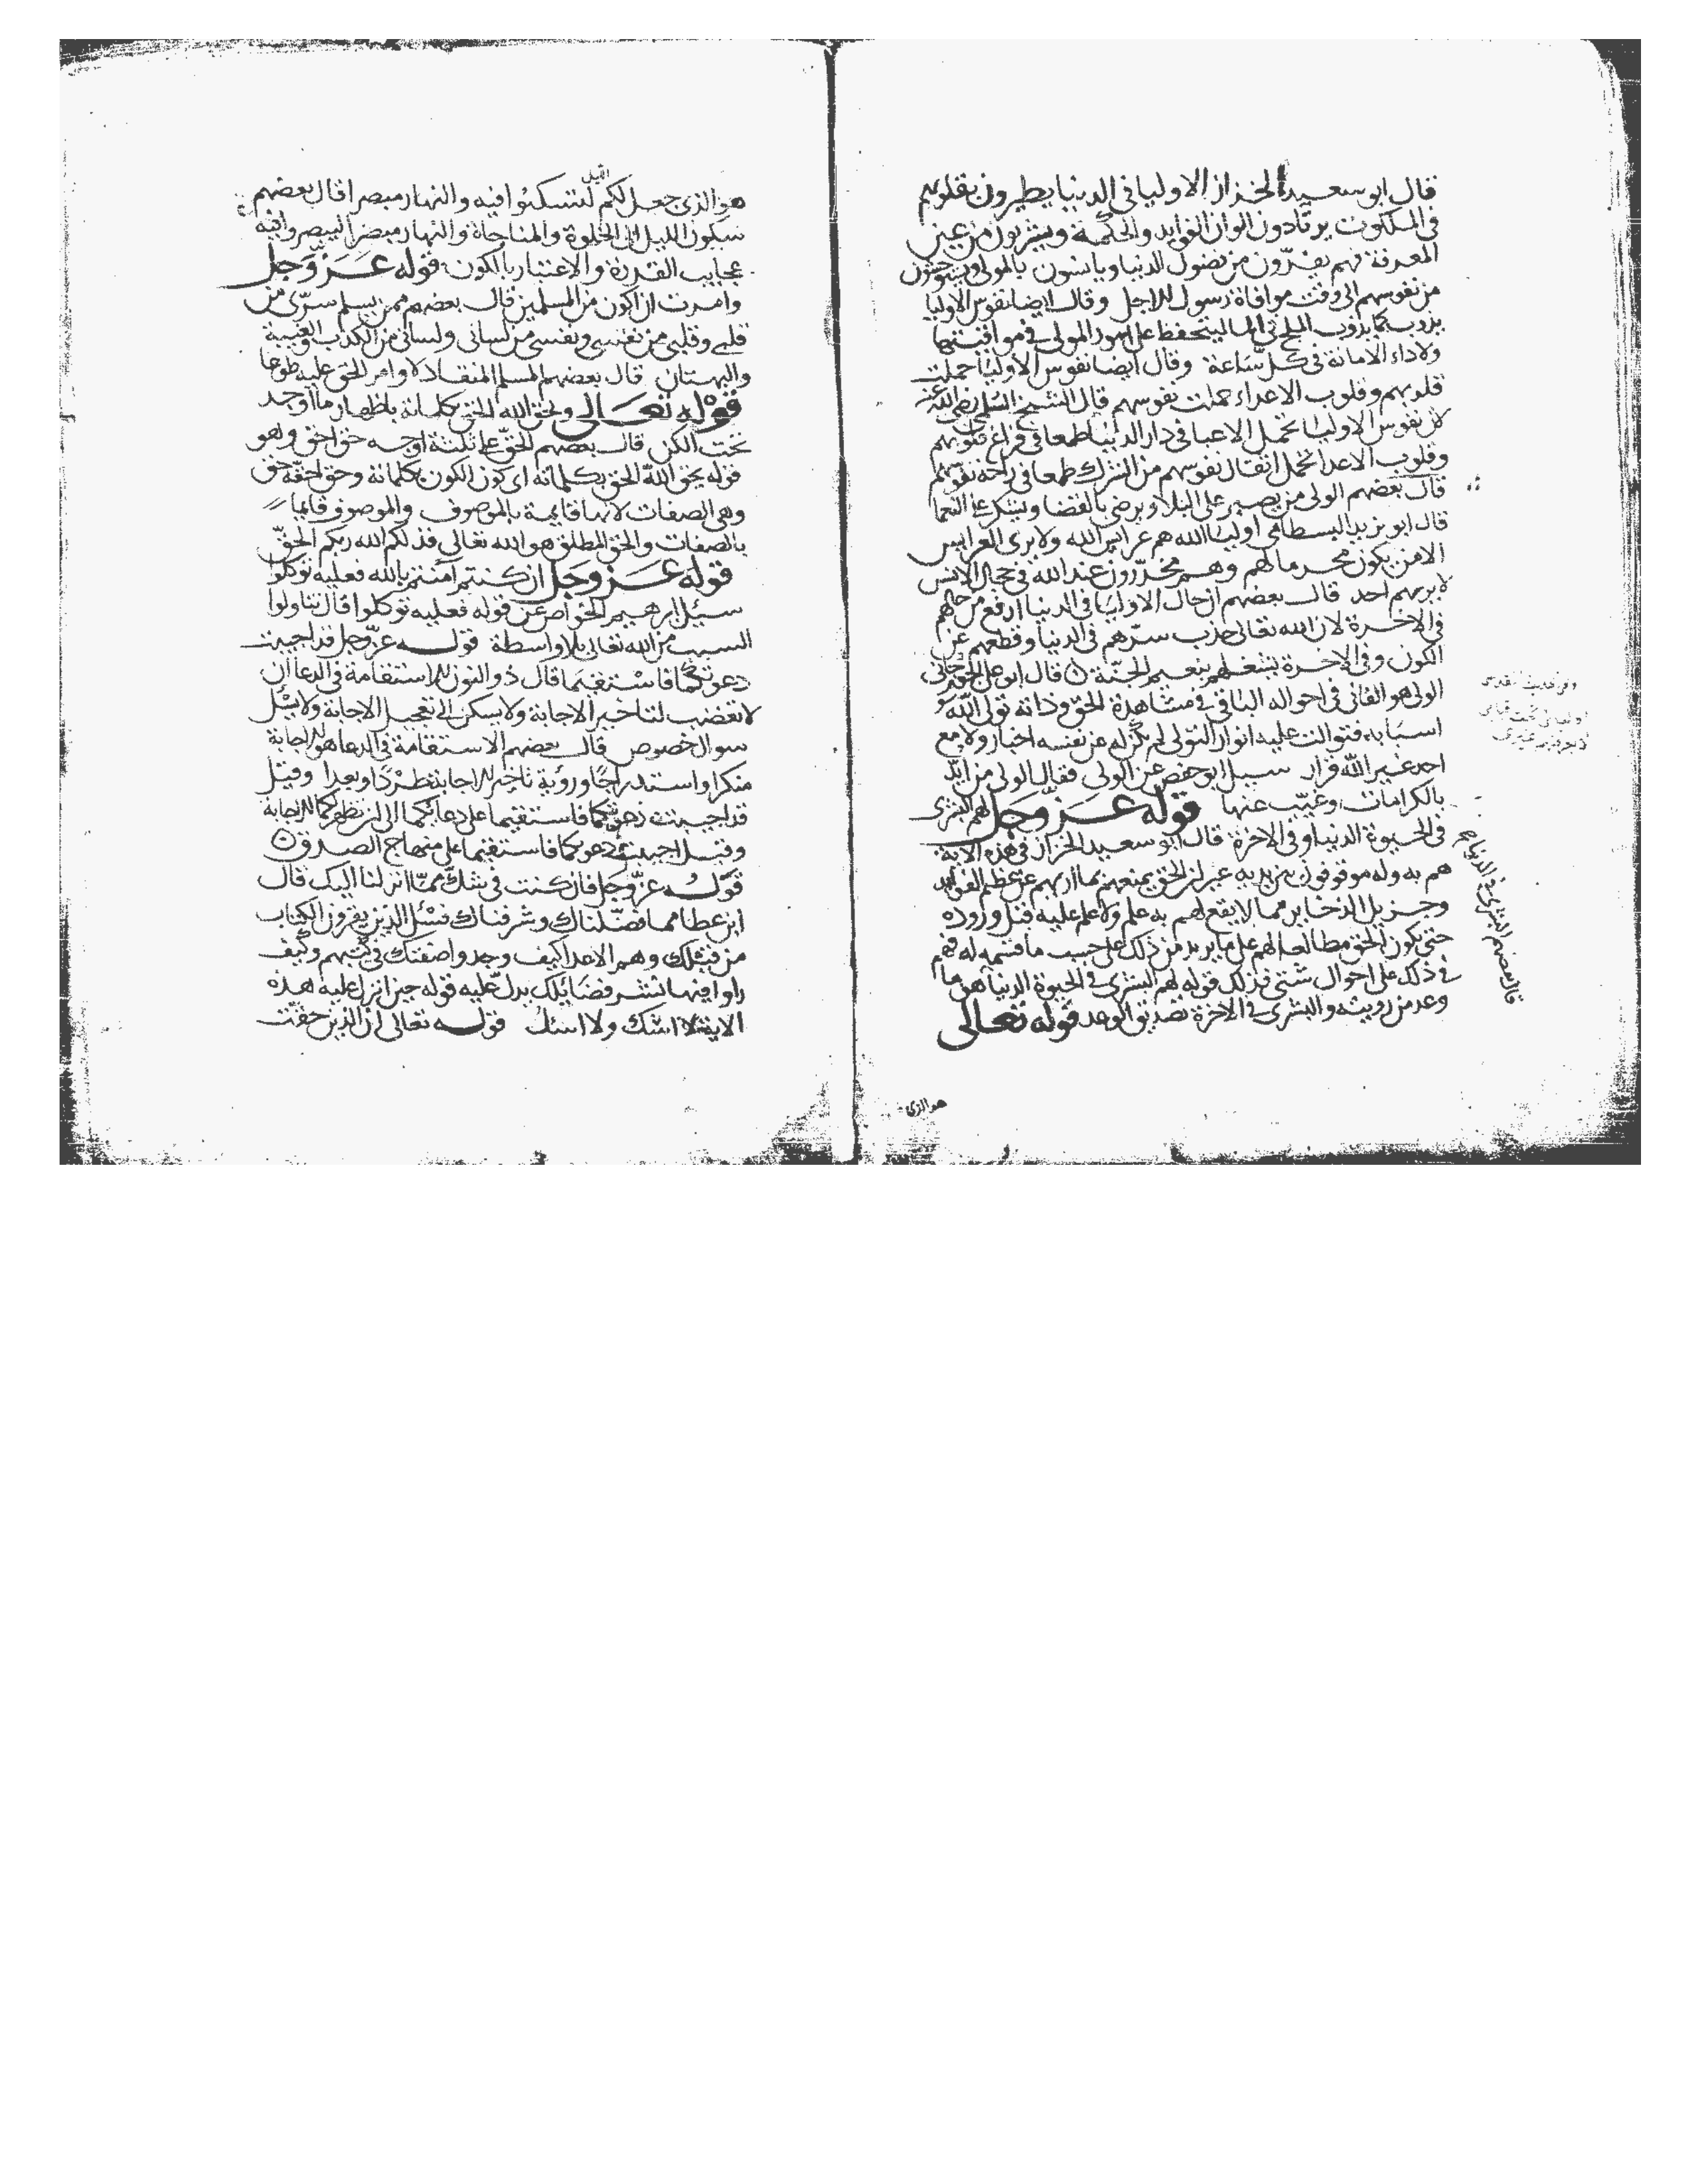 قال ابو سعيد الخزاز الاوليا فى الدنيا يطيرون بقلوبهم
فى الملكوت يرتادون الوان الفوايد والحكمة ويشربون من عين
المعرفة فهم يفرّون من فضول الدنيا ويانسون بالمولى ويستوحشون
من نفوسهم الى وقت موافاة رسول للاجل وقال ايضا نفوس الاوليا
يذوب كما يذوب الملح فى الما ليتحفظ على امور المولى فى مواقيتها
ولاداء الامانة فى كل ساعة وقال ايضا نفوس الاوليا حملت
قلوبهم وقلوب الاعداء حملت نفوسهم قال الشيخ السلمى رضى الله عنه
لان نفوس الاوليا تحمل الاعبا فى دار الدنيا طمعا فى فراغ قلوبهم
وقلوب الاعدا تحمل اثقال نفوسهم من الشرك طمعا فى راحة نفوسهم
قال بعضهم الولى من يصبر على البلا ويرضى بالقضا ويشكر على النعما
قال ابو يزيد البسطامى اوليا الله هم عرايس الله ولا يرى العرايس
الا من يكون محرما لهم وهم مخدّرون عند الله فى حجال الانس
لا يريهم احد قال بعضهم ان حال الاوليا فى الدنيا ارفع من حالهم
فى الاخرة لان الله تعالى جذب سرّهم فى الدنيا وقطعهم عن
الكون وفى الاخرة يشغلهم بنعيم الجنّة قال ابو على الجوزجانى
الولى هو الفانى فى احواله الباقى فى مشاهدة الحق وذاته تولى الله
اسبابه فتوالت عليه انوار التولى لم يكن له عن نفسه اخبار ولا مع
احد غير الله قرار سيل ابو حفص عن الولى فقال الولى من ايّد
بالكرامات وغيّب عنها قوله عز وجل لهم البشرى
فى الحيوة الدنيا وفى الاخرة قال ابو سعيد الخزاز فى هذه الاية
هم به وله موقوفون بين يديه غير ان الحق يمنعهم بما اربهم عن عظم الفوايد
وجزيل الذخاير مما لا يقع لهم به علم ولا علم عليه قبل وروده
حتى يكون الحق مطالعا لهم على ما يريد من ذلك على حسب ما قسمه له فهم
فى ذلك على احوال شتى فذلك قوله لهم البشرى فى الحيوة الدنيا هى ما
وعد من رويته والبشرى فى الاخرة تصديق الوعد قوله تعالى
هو الذى
هو الذى جعل لكم الليل لتسكنوا فيه والنهار مبصرا قال بعضهم
سكون الليل الى الخلوة والمناجاة والنهار مبصرا ليبصروا فيه
عجايب القدرة والاعتبار بالكون قوله عز وجل
وامرت ان اكون من المسلمين قال بعضهم ممن يسلم سرّى من
قلبى وقلبى من نفسى ونفسى من لسانى ولسانى من الكذب والغيبة
والبهتان قال بعضهم المسلم المنقاد لاوامر الحق عليه طوعا
قوله تعالى ويحق الله الحق بكلماته باظهار ما اوجد
تحت الكن قال بعضهم الحق على ثلثة اوجه حق احق وهو
قوله يحق الله الحق بكلماته اى كون الكون بكلماته وحق احقّه حق
وهى الصفات لانها قايمة بالموصوف والموصوف قايما
بالصفات والحق المطلق هو الله تعالى فذلكم الله ربكم الحق
قوله عز وجل ان كنتم آمنتم بالله فعليه توكلوا
سيل ابرهيم الخواص عن قوله فعليه توكلوا قال تناولوا
السبب من الله تعالى بلا واسطة قوله عزّ وجل قد اجيبت
دعوتكما فاستقيما قال ذو النون الاستقامة فى الدعا ان
لا تغضب لتاخير الاجابة ولا يسكن الى تعجيل الاجابة ولا يسئل
سوال خصوص قال بعضهم الاستقامة فى الدعا هو الاجابة
مكرا واستدراجا وروية تاخير الاجابة طردا وبعدا وقيل
قد اجيبت دعوتكما فاستقيما على دعائكما الى ان تظهر لكما الاجابة
وقيل اجيبت دعوتكما فاستقيما على منهاج الصدق
قوله عزّ وجل فان كنت فى شك ممّا انزلنا اليك قال
ابن عطا مما فضّلناك وشرفناك فسئل الذين يقرون الكتاب
من قبلك وهم الاعدا كيف وجدوا صفتك فى كتبهم وكيف
راوا فيها نشر فضايلك يدل عليه قوله حين انزل عليه هذه
الاية لا اشك ولا اسئل قوله تعالى ان الذين حقت